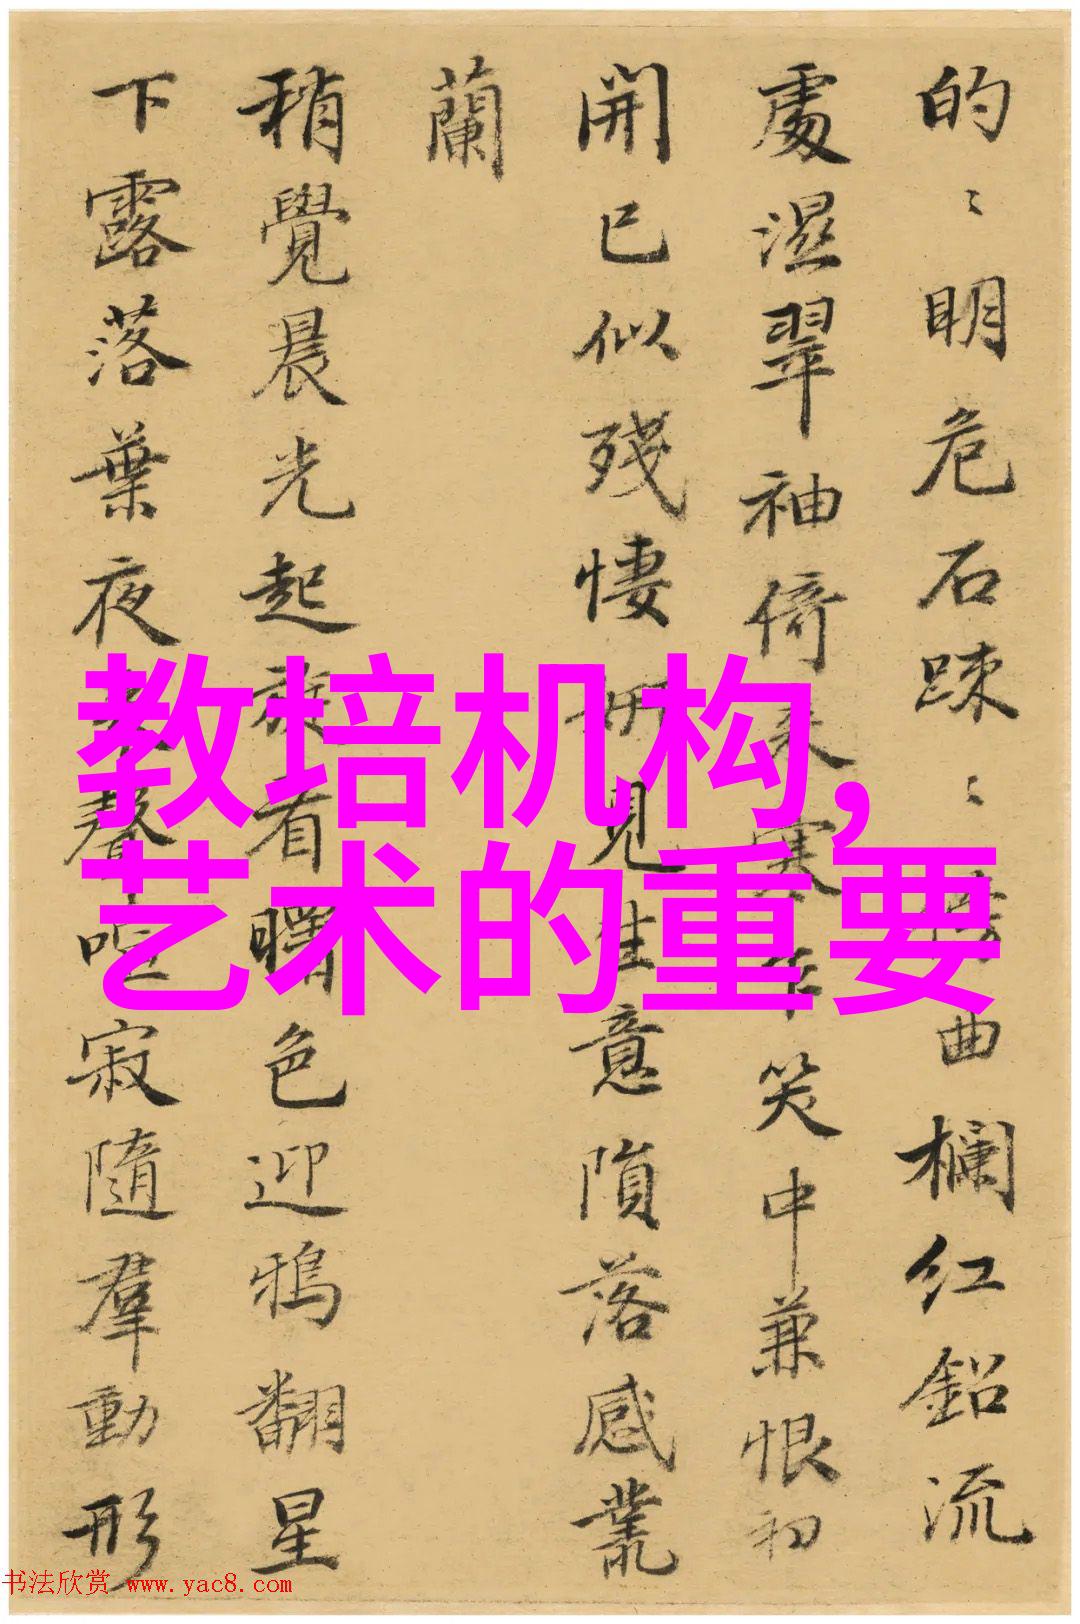 的〻明危石踈〻曲欄紅鉛流
處濕翠袖倚寒笑中兼恨初
開已似殘悽見生意隕落感叢
蘭
稍覺晨光起看曙色迎鴉翻星
下露落葉夜聲寂隨羣動形
教培机构,
艺术的重要
书法欣赏 www.yac8.com